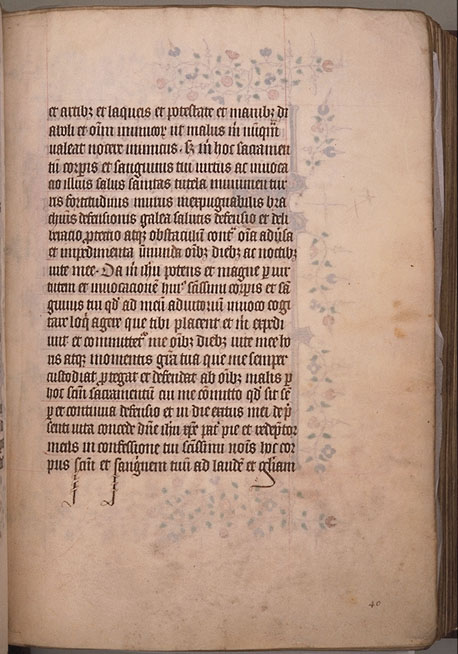 et artibz et laqueis et potestate et manibz di
aboli et oīm inimicor ut malus m nūqm
ualeat nocere inimicus. Sz m hoc sacramen
tū corpis et sanguinis tui uirtus ac inuoca
cio illius salus sanitas tutela munimen tur
ris fortitudinis murus inexpugnabilis bra
chiū defensionis galea salutis defensio et deli
beratio ptectio atqz obstaculū cont oīa aduīsa
et impedimenta diebz ac noctibz
uite mee. Da m ihu potens et magne p uir
tutem et inuocationē hui scissimi corpis et sā
guinis tui qd ad meū adiutoriū inuoco cogi
tare loq agere que tibi placent et m expedi
unt et committe me oībz diebz uite mee ho
ris atqz momentis gra tua que me semper
custodiat ptegat et defendat ab oībz malis p
hoc scm sacramentū cui me cōmitto qd sit sē
p et continua defensio et in die exitus mei de p
senti uita concede dne ihu xpe pat pie et redeptor
meus in confessione tui scissimi nois hoc cor
pus scm et sanguinem tuū ad laudē et gliam
40